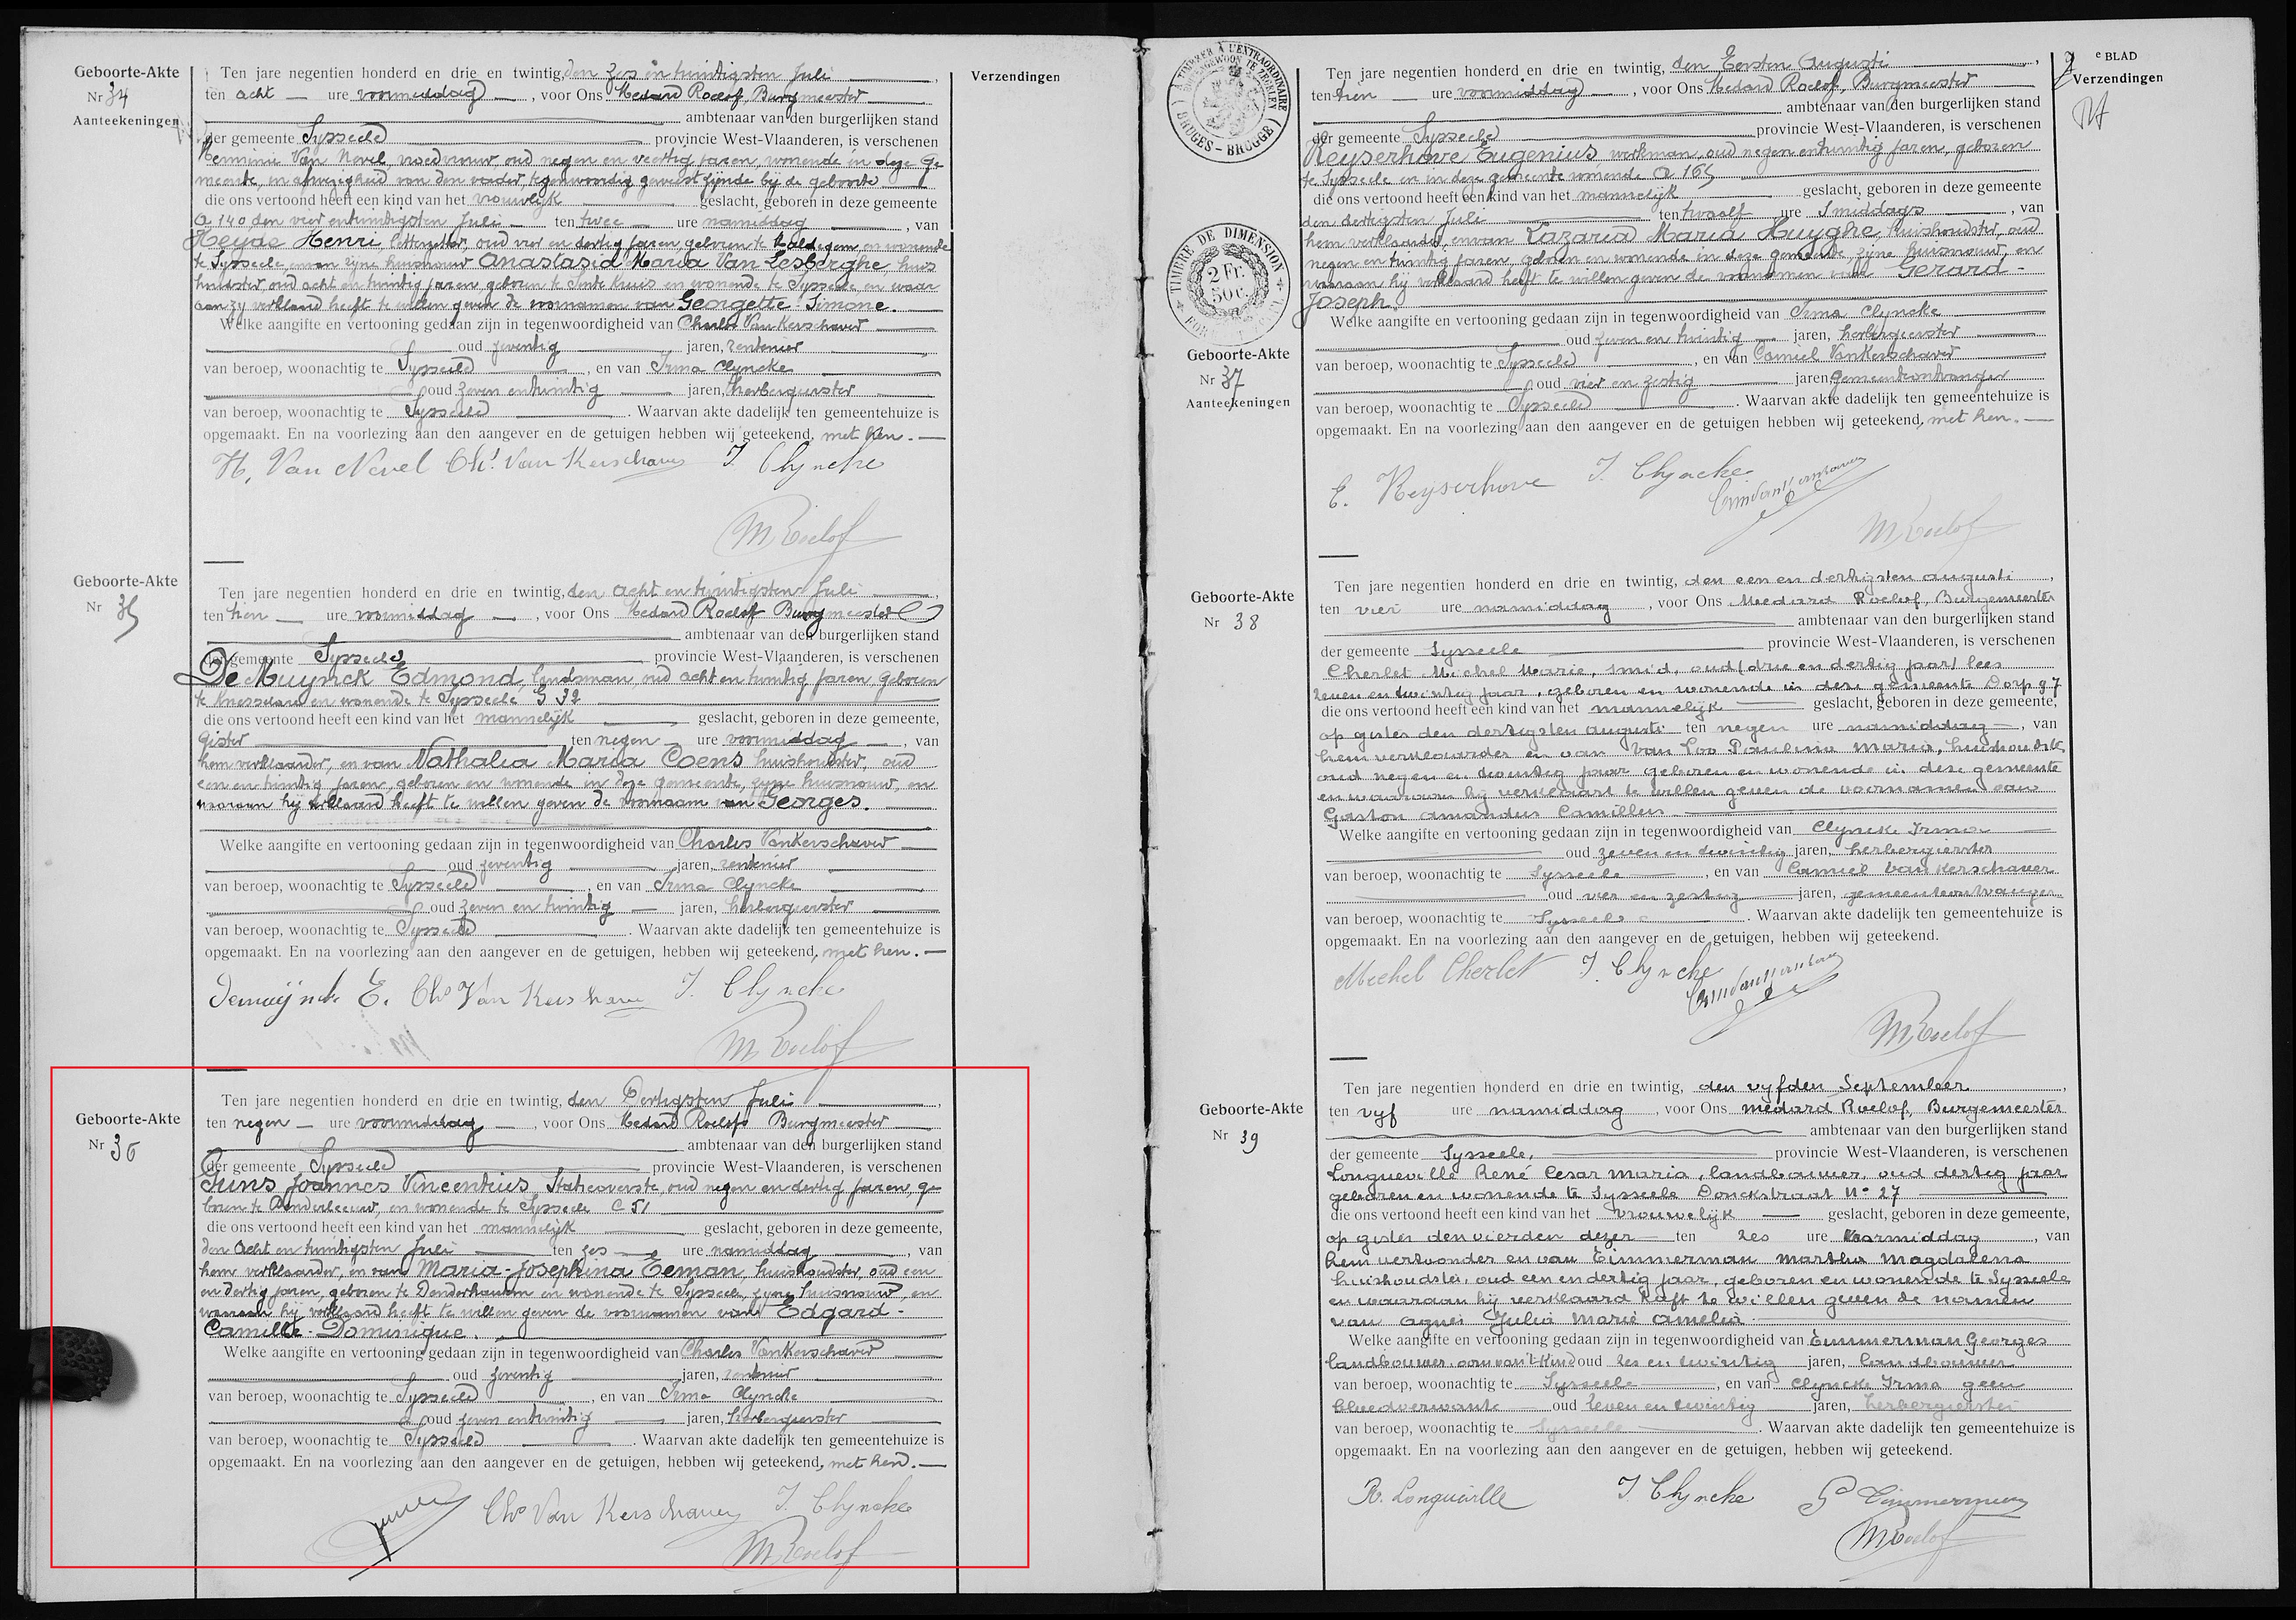 Geboorte-Akte
Nr 34
Aanteekeningen
Verzendingen
Ten jare negentien honderd en drie en twintig, den zes en twintigsten Juli
ten acht ure voormiddag, voor Ons Medard Roelof, Burgmeester
ambtenaar van den burgerlijken stand
der gemeente Sysseele provincie West-Vlaanderen, is verschenen
Herminie Van Nevel vroedvrouw, oud negen en veertig jaren, wonende in deze ge
meente, in afwezigheid van den vader, tegenwoordig geweest zijnde bij de geboorte
die ons vertoond heeft een kind van het vrouwelijk geslacht, geboren in deze gemeente
A 140 den vier en twintigsten Juli ten twee ure namiddag, van
Henri letterzetter, oud vier en dertig jaren, geboren te Maldegem en wonende
te Sysseele, en van zijne huisvrouw Anastasia Maria Van Lesberghe, huis
houdster oud acht en twintig jaren geboren te Sinte Kruis en wonende te Sysseele, en waar
aan zij verklaard heeft te willen geven de voornamen van Georgette Simone.
Welke aangifte en vertooning gedaan zijn in tegenwoordigheid van Charles Van Kerschaver
oud zeventig jaren, rentenier
van beroep, woonachtig te Sysseele, en van Irma Clyncke
oud zeven en twintig jaren, herbergierster
van beroep, woonachtig te Sysseele. Waarvan akte dadelijk ten gemeentehuize is
opgemaakt. En na voorlezing aan den aangever en de getuigen hebben wij geteekend, met hen.
H. Van Nevel Chs Van Kerschaver I. Clyncke
M Roelof
Geboorte-Akte
Nr 35
Ten jare negentien honderd en drie en twintig, den acht en twintigsten Juli
ten tien ure voormiddag, voor Ons Medard Roelof Burgmeester
ambtenaar van den burgerlijken stand
der gemeente Sysseele provincie West-Vlaanderen, is verschenen
De Muynck Edmond, landsman, oud acht en twintig jaren, geboren
te Knesselare en wonende te Sysseele G 32
die ons vertoond heeft een kind van het mannelijk geslacht, geboren in deze gemeente,
gister ten negen ure voormiddag, van
hem verklaarder, en van Nathalia Maria Coens huishoudster, oud
een en twintig jaren, geboren en wonende in deze gemeente, zijne huisvrouw, en
waaraan hij verklaard heeft te willen geven de voornaam van Georges.
Welke aangifte en vertooning gedaan zijn in tegenwoordigheid van Charles VanKerschaver
oud zeventig jaren, rentenier
van beroep, woonachtig te Sysseele, en van Irma Clyncke
oud zeven en twintig jaren, herbergierster
van beroep, woonachtig te Sysseele. Waarvan akte dadelijk ten gemeentehuize is
opgemaakt. En na voorlezing aan den aangever en de getuigen, hebben wij geteekend, met hen.
Demuynck E. Chs Van Kerschaver I. Clyncke
M Roelof
Geboorte-Akte
Nr 36
Ten jare negentien honderd en drie en twintig, den Dertigsten Juli
ten negen ure voormiddag, voor Ons Medard Roelof Burgmeester
ambtenaar van den burgerlijken stand
der gemeente Sysseele provincie West-Vlaanderen, is verschenen
Joannes Vincentius Statieoverste, oud negen en dertig jaren, ge
boren te Denderleeuw, en wonende te Sysseele C 51
die ons vertoond heeft een kind van het mannelijk geslacht, geboren in deze gemeente,
den acht en twintigsten Juli ten zes ure namiddag, van
hem verklaarder, en van Maria-Josephina Eeman, huishoudster, oud een
en dertig jaren, geboren te Denderhautem en wonende te Sysseele, zijne huisvrouw, en
waaraan hij verklaard heeft te willen geven de voornamen van Edgard-
Camille-Dominique.
Welke aangifte en vertooning gedaan zijn in tegenwoordigheid van Charles VanKerschaver
oud zeventig jaren, rentenier
van beroep, woonachtig te Sysseele, en van Irma Clyncke
oud zeven en twintig jaren, herbergierster
van beroep, woonachtig te Sysseele. Waarvan akte dadelijk ten gemeentehuize is
opgemaakt. En na voorlezing aan den aangever en de getuigen, hebben wij geteekend, met hen.
Chs Van Kerschaver I. Clyncke
M Roelof
e BLAD
Verzendingen
TIMBRE DE DIMENSION
2 Fr.
50 c.
BRUGES - BRUGGE
Geboorte-Akte
Nr 37
Aanteekeningen
Ten jare negentien honderd en drie en twintig, den Eersten Augusti
ten tien ure voormiddag, voor Ons Medard Roelof, Burgmeester
ambtenaar van den burgerlijken stand
der gemeente Sysseele provincie West-Vlaanderen, is verschenen
Reyserhove Eugenius werkman, oud negen en twintig jaren, geboren
te Sysseele en in deze gemeente wonende A 165
die ons vertoond heeft een kind van het mannelijk geslacht, geboren in deze gemeente
den dertigsten Juli ten twaalf ure smiddags, van
hem verklaarder, en van Lazaria Maria Huyghe, huishoudster, oud
negen en twintig jaren, geboren en wonende in deze gemeente, zijne huisvrouw, en
waaraan hij verklaard heeft te willen geven de voornamen van Gerard-
Joseph.
Welke aangifte en vertooning gedaan zijn in tegenwoordigheid van Irma Clyncke
oud zeven en twintig jaren, herbergierster
van beroep, woonachtig te Sysseele, en van Camiel VanKerschaver
oud vier en zestig jaren, gemeenteontvanger
van beroep, woonachtig te Sysseele. Waarvan akte dadelijk ten gemeentehuize is
opgemaakt. En na voorlezing aan den aangever en de getuigen hebben wij geteekend, met hen.
E. Reyserhove I. Clyncke
M Roelof
Geboorte-Akte
Nr 38
Ten jare negentien honderd en drie en twintig, den een en dertigsten augusti
ten vier ure namiddag, voor Ons Medard Roelof, Burgemeester
ambtenaar van den burgerlijken stand
der gemeente Sysseele provincie West-Vlaanderen, is verschenen
Cherlet Michel Marie, smid, oud (drie en dertig jaar) lees
zeven en twintig jaar, geboren en wonende in deze gemeente Dorp 97
die ons vertoond heeft een kind van het mannelijk geslacht, geboren in deze gemeente,
op gister den dertigsten augusti ten negen ure namiddag, van
hem verklaarder en van Van Loo Paulina Maria, huishoudster,
oud negen en twintig jaar geboren en wonende in deze gemeente
en waaraan hij verklaart te willen geven de voornamen van
Gaston Amandus Camillus.
Welke aangifte en vertooning gedaan zijn in tegenwoordigheid van Clyncke Irma
oud zeven en twintig jaren, herbergierster
van beroep, woonachtig te Sysseele, en van Camiel Van Kerschaver
oud vier en zestig jaren, gemeenteontvanger
van beroep, woonachtig te Sysseele. Waarvan akte dadelijk ten gemeentehuize is
opgemaakt. En na voorlezing aan den aangever en de getuigen, hebben wij geteekend.
Michel Cherlet I. Clyncke
M Roelof
Geboorte-Akte
Nr 39
Ten jare negentien honderd en drie en twintig, den vyfden September
ten vyf ure namiddag, voor Ons Medard Roelof, Burgemeester
ambtenaar van den burgerlijken stand
der gemeente Sysseele, provincie West-Vlaanderen, is verschenen
Longueville René Cesar Maria, landbouwer, oud dertig jaar
geboren en wonende te Sysseele Donckstraat No 27
die ons vertoond heeft een kind van het vrouwelijk geslacht, geboren in deze gemeente,
op gister den vierden dezer ten zes ure voormiddag, van
hem vertooner en van Timmerman Martha Magdalena
huishoudster, oud een en dertig jaar, geboren en wonende te Sysseele
en waaraan hij verklaard heeft te willen geven de namen
van Agnes Julia Marie Amelia.
Welke aangifte en vertooning gedaan zijn in tegenwoordigheid van Timmerman Georges
landbouwer, oom van 't kind oud zes en twintig jaren, landbouwer
van beroep, woonachtig te Sysseele, en van Clyncke Irma geen
bloedverwante oud zeven en twintig jaren, herbergierster
van beroep, woonachtig te Sysseele. Waarvan akte dadelijk ten gemeentehuize is
opgemaakt. En na voorlezing aan den aangever en de getuigen, hebben wij geteekend.
R. Longueville I. Clyncke G Timmerman
M Roelof